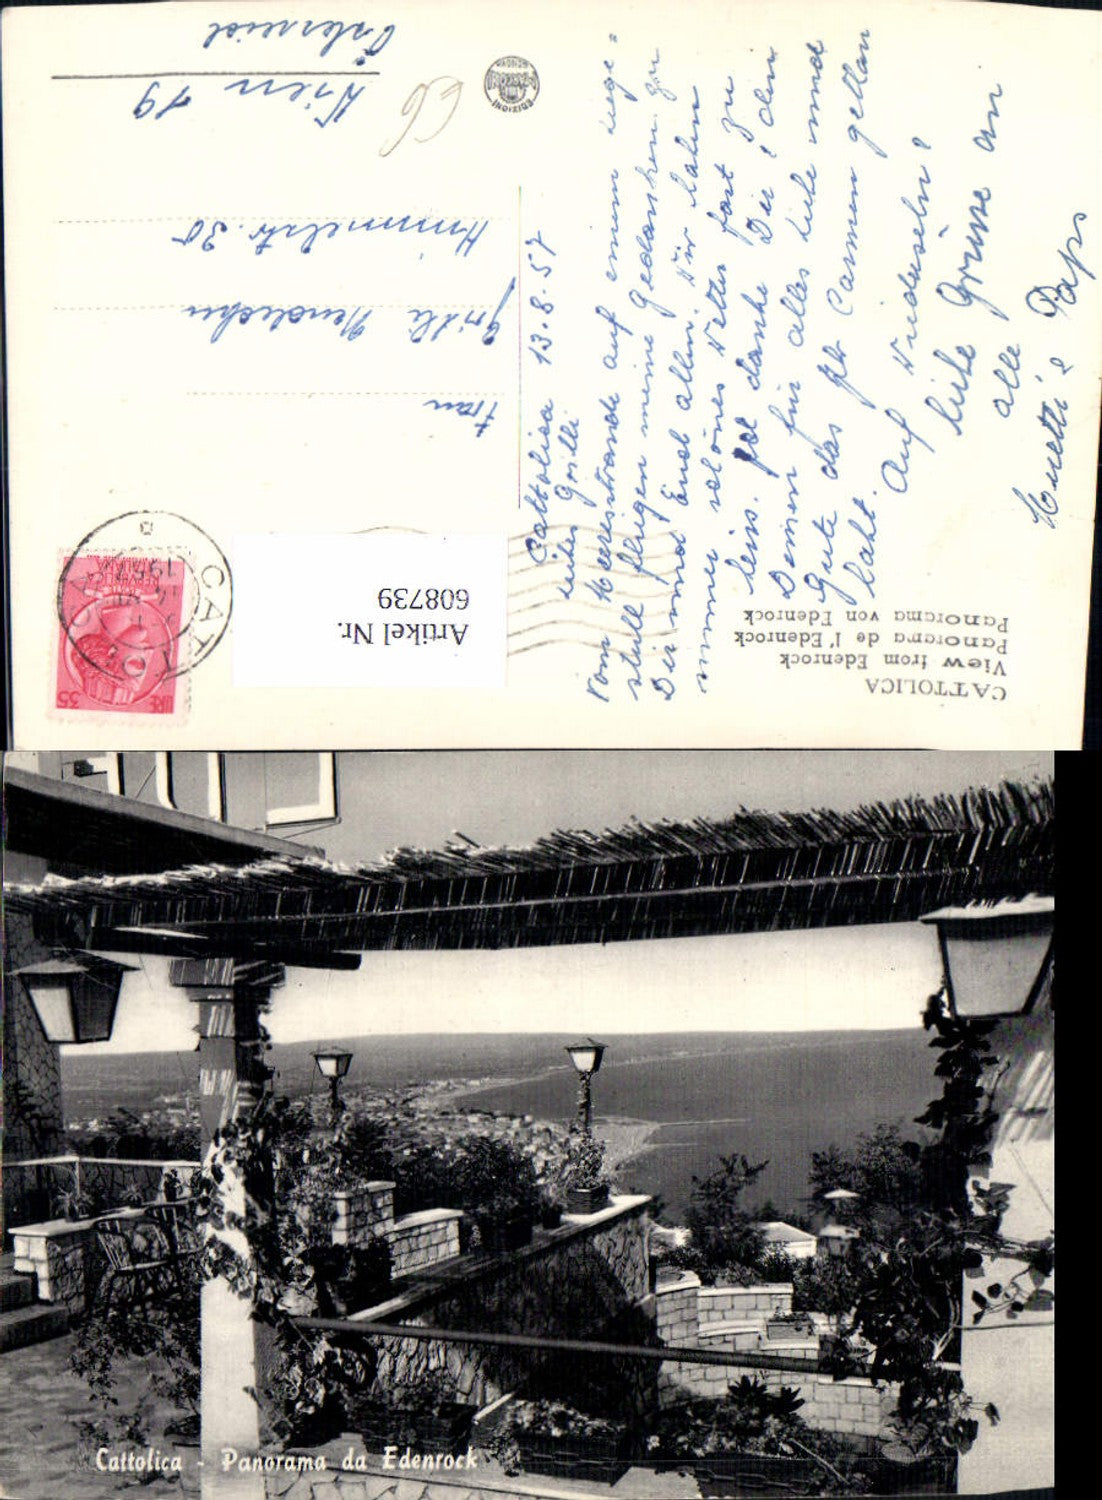 CATTOLICA
View from Edenrock
Panorama de l'Edenrock
Panorama von Edenrock
Cattolica 13.8.57
Liebes Grilli
vom Meeresstrande auf einem Liege-
stuhl fliegen meine Gedanken zu
Dir und Euch allen. Wir haben
immer schönes Wetter fast zu
heiss. Ich danke Dir & den
Deinen für alles Liebe und
Gute das Ihr Carmen getan
habt.
Auf Wiedersehn!
liebe Grüsse an
alle
Mutti & Paps
EDIZIONI
Frau
Grilli
Himmelstr. 30
Wien 19
Österreich
LIRE 35
REPVBBLICA
ITALIANA
CATTOLICA
Artikel Nr.
608739
Cattolica - Panorama da Edenrock